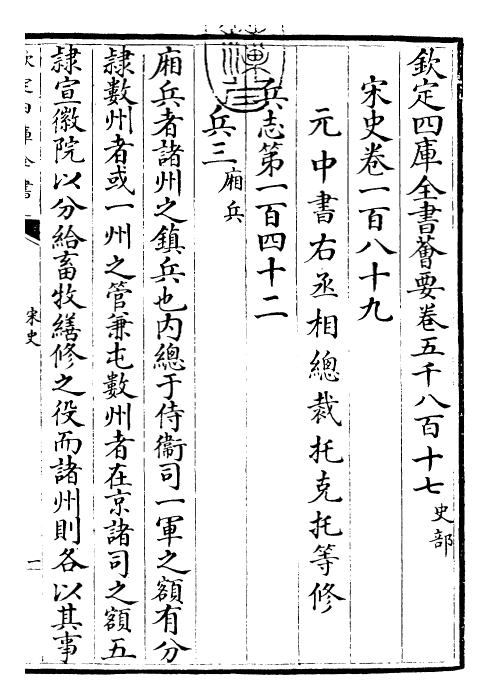 欽定四庫全書薈要卷五千八百十七 史部
宋史卷一百八十九
元中書右丞相總裁托克托等修
兵志第一百四十二
兵三 廂兵
廂兵者諸州之鎮兵也内總于侍衞司一軍之額有分
隸數州者或一州之管兼屯數州者在京諸司之額五
隸宣徽院以分給畜牧繕修之役而諸州則各以其事
欽定四庫全書
宋史
一